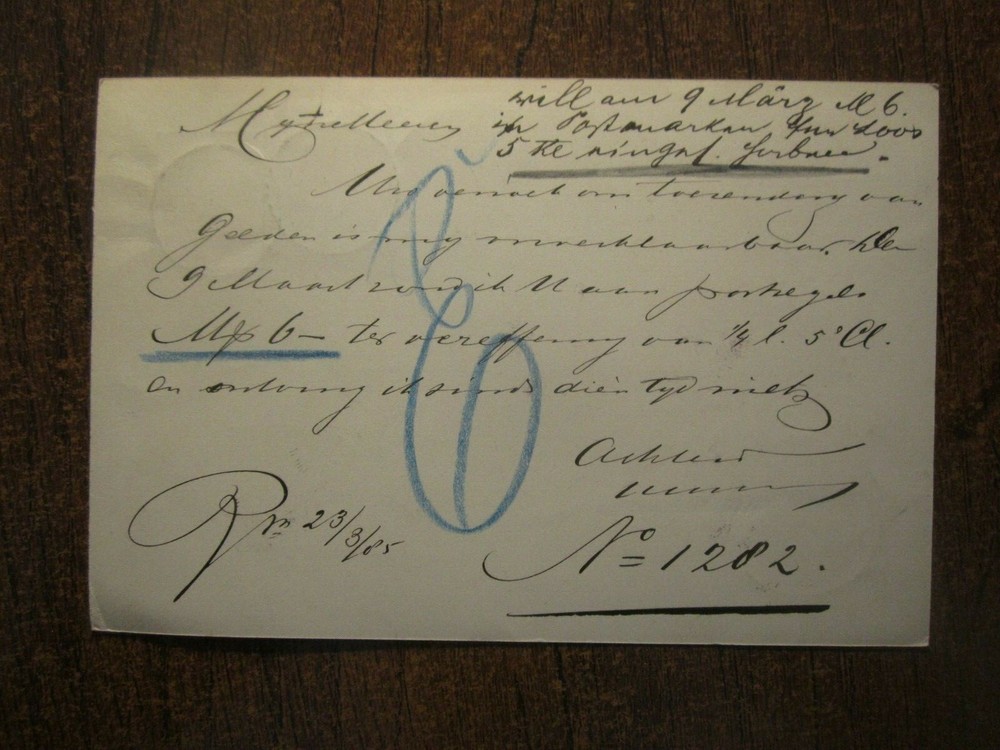 will am 9 März M 6.
in Postmarken für Loos
5 Kl einges. haben.
Mijne Heeren
Uw verzoek om toezending van
Gelden is my onverklaarbaar. Den
9 Maart zond ik U aan postzegels
Mk 6 – ter vereffening van 1/4 l. 5e Cl.
en ontving ik sinds dien tyd niets
Achtend
Rm 23/3/85
No 1282.